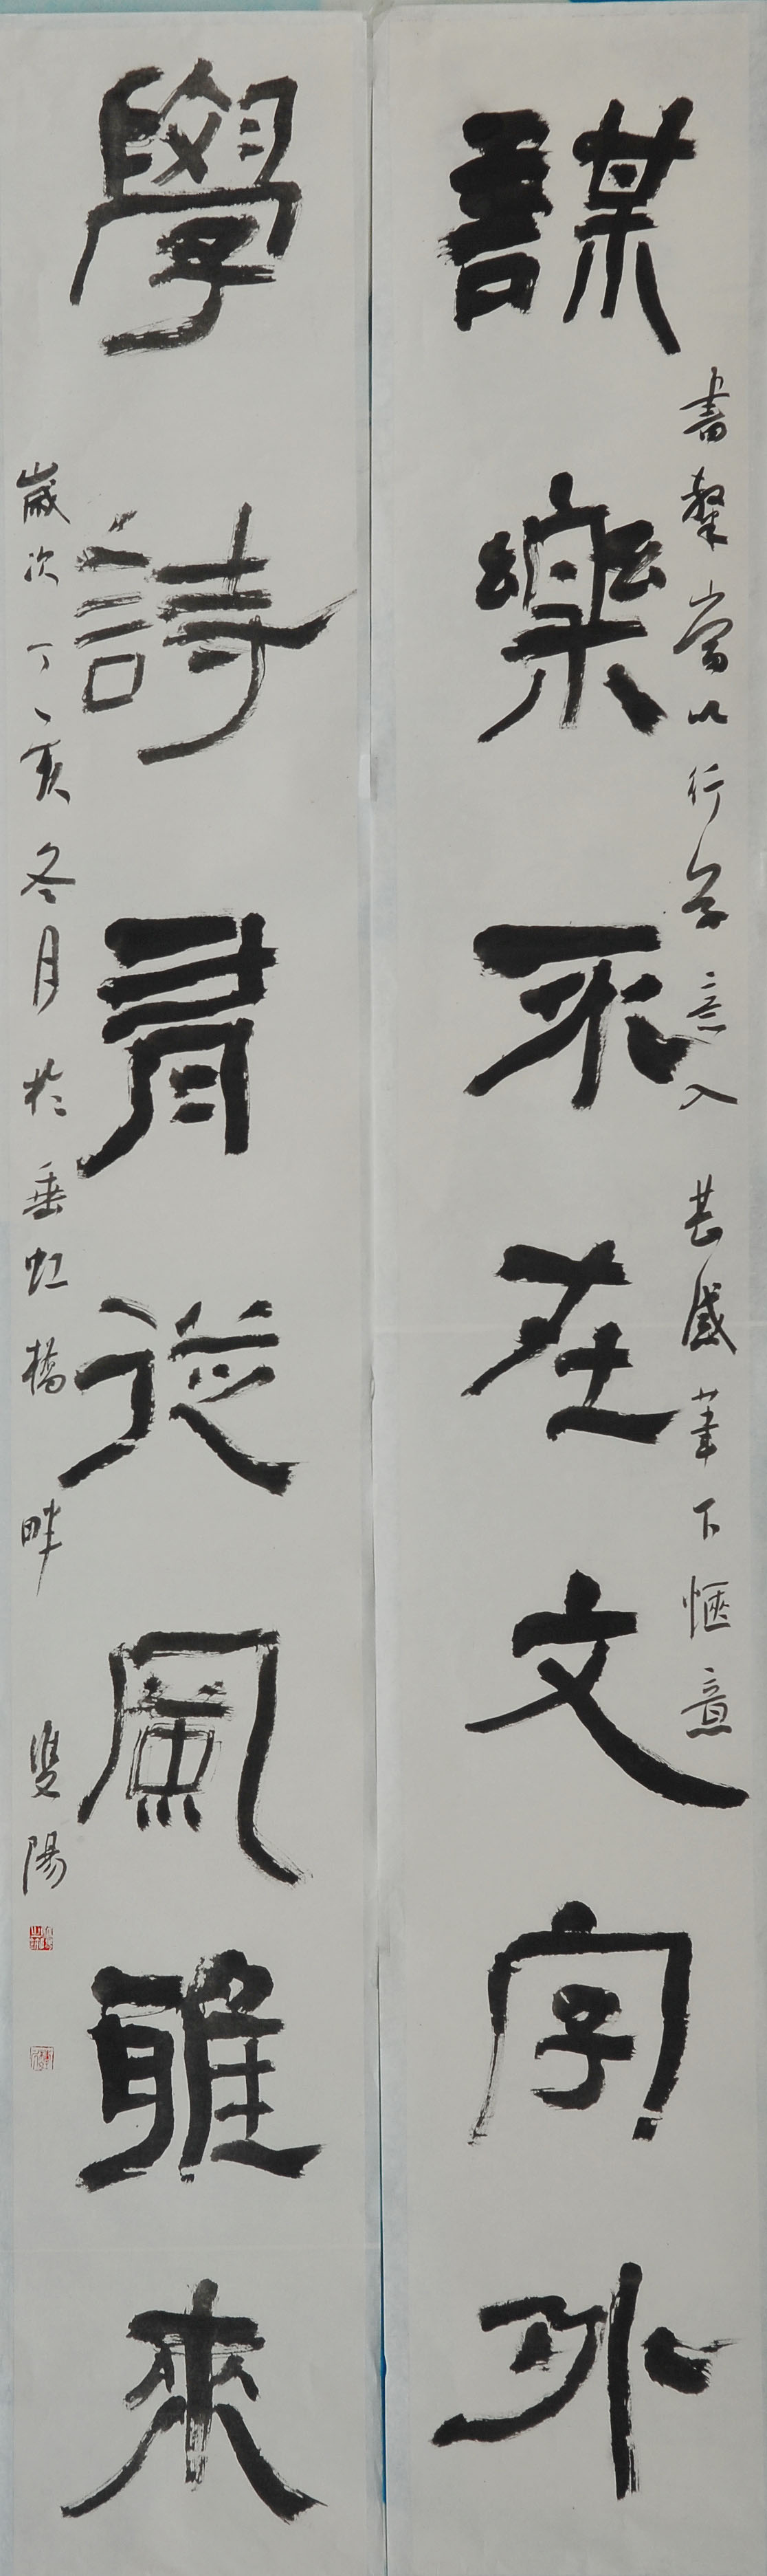 謀樂不在文字外
書隸當以行草意入
甚感筆下愜意
學詩肎從風雅來
歲次丁亥冬月於垂虹橋畔
雙陽